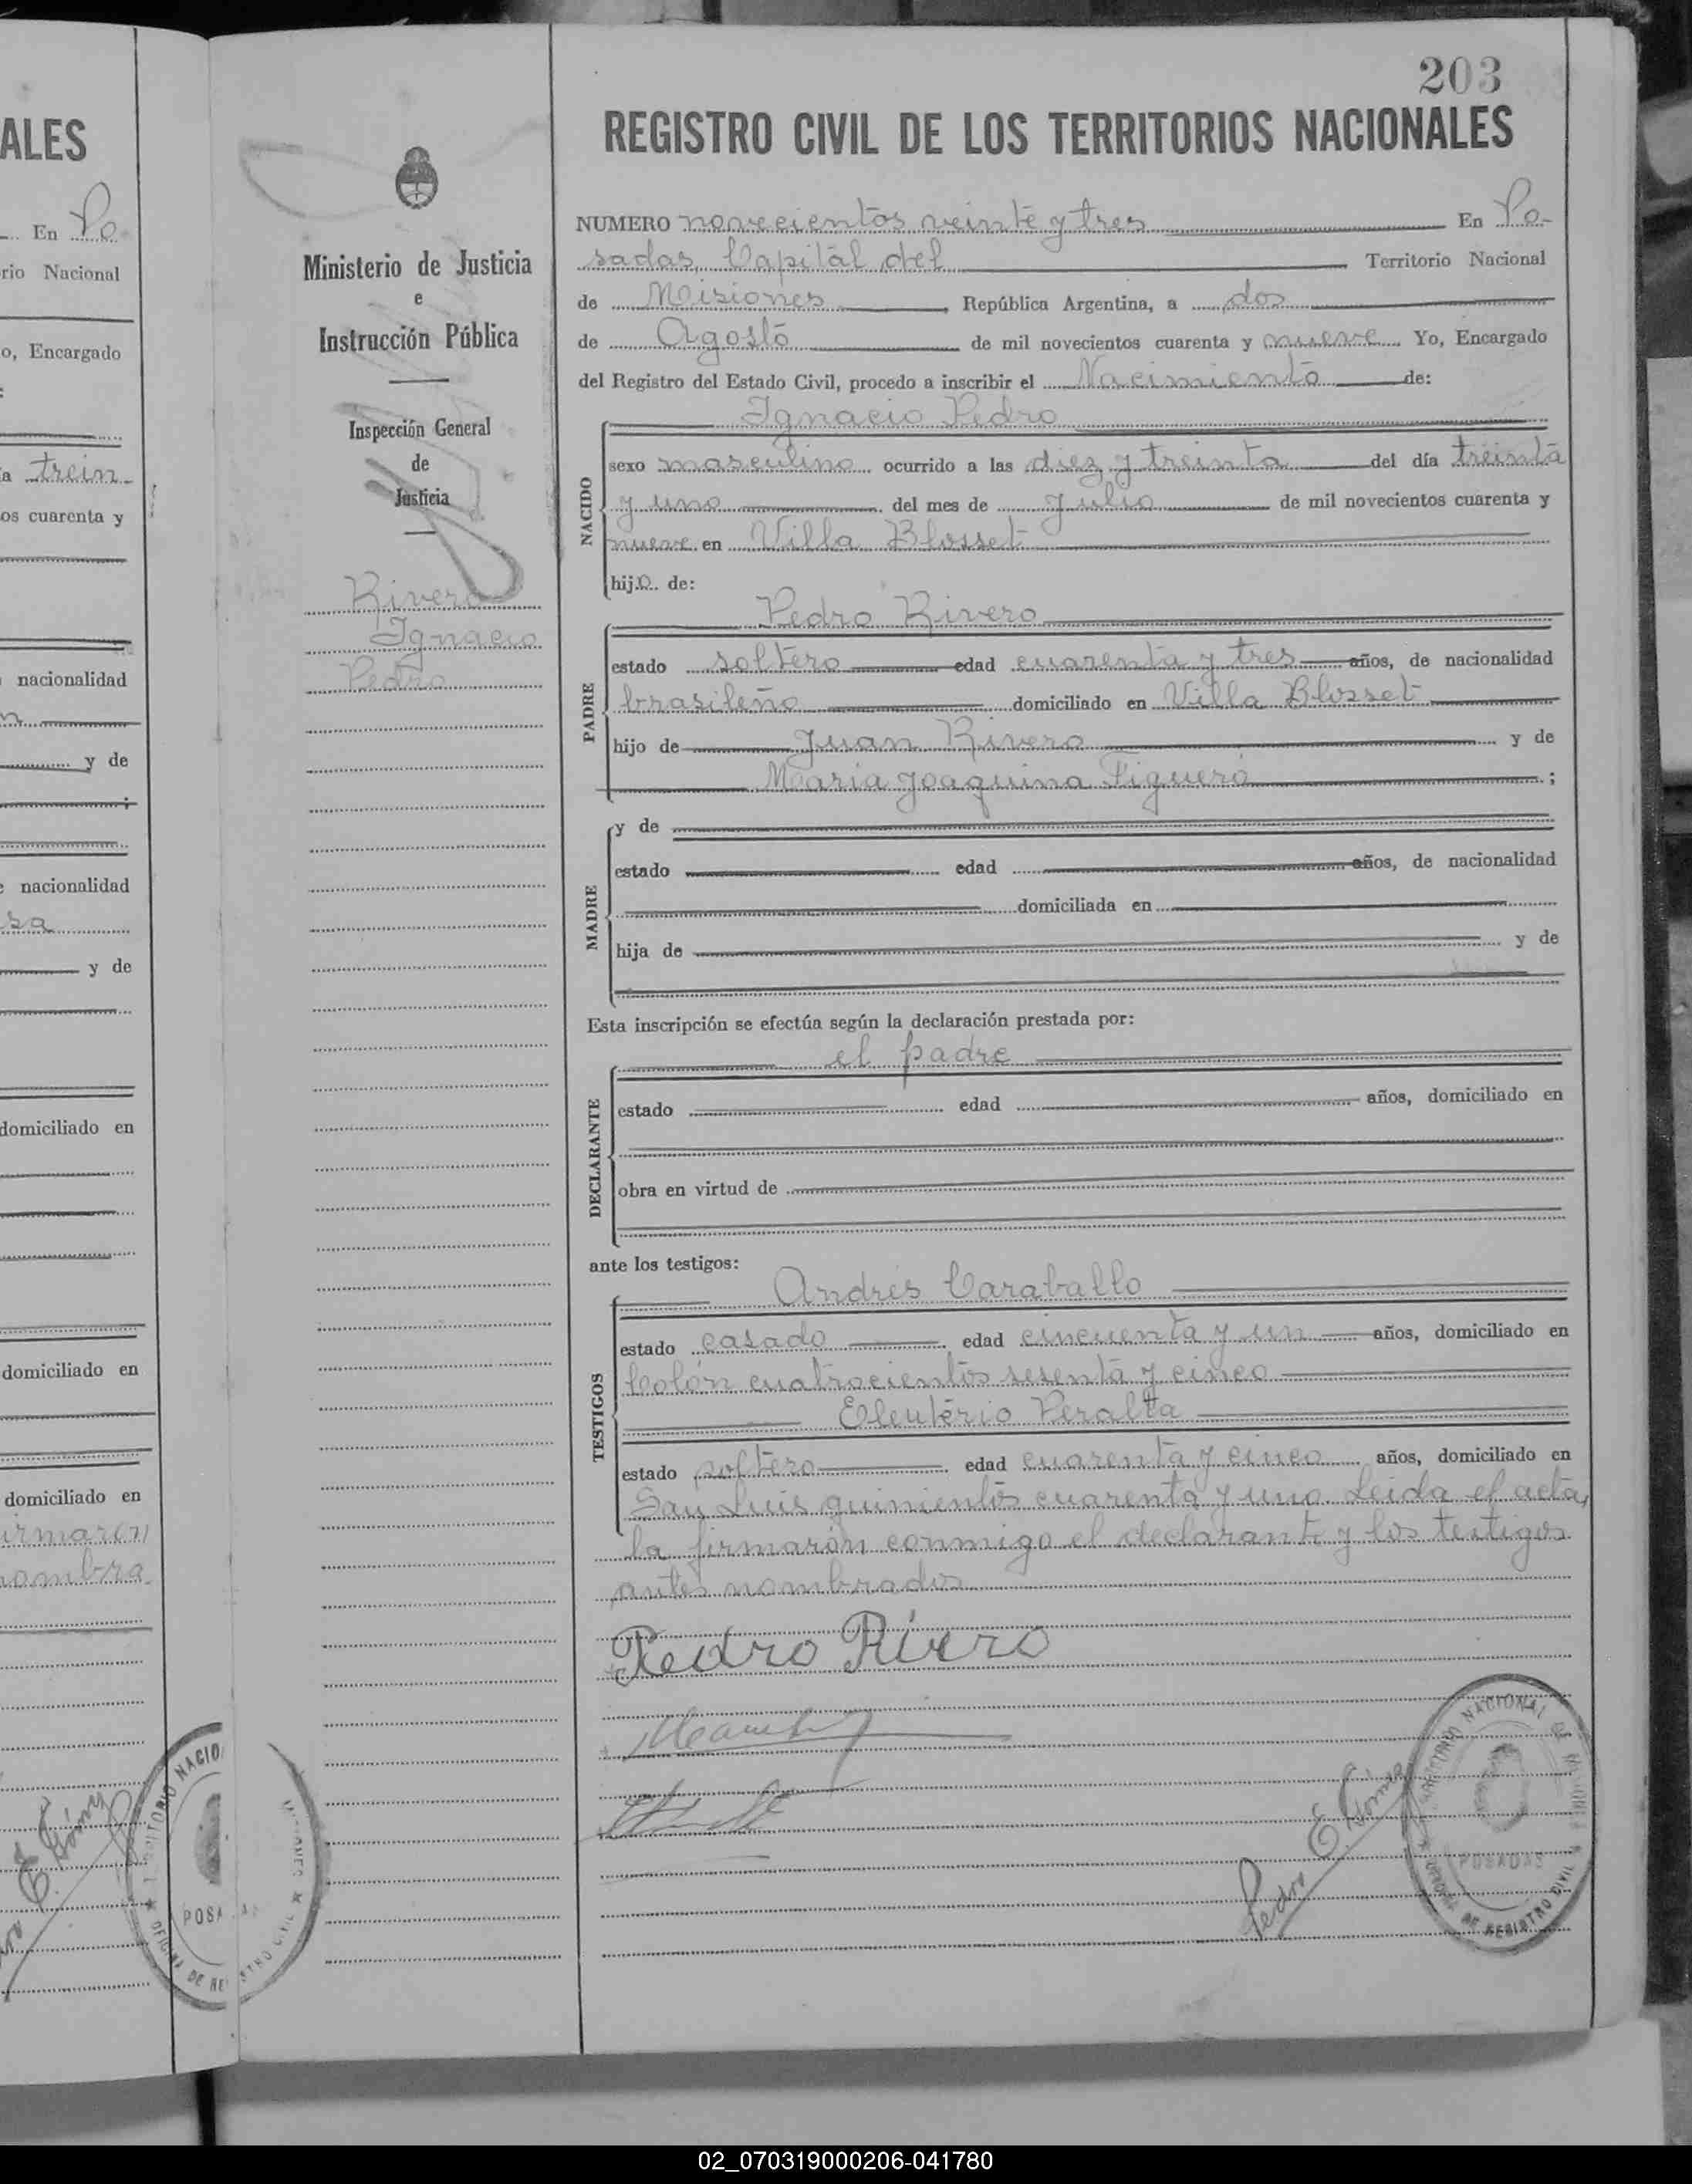 203
REGISTRO CIVIL DE LOS TERRITORIOS NACIONALES
Ministerio de Justicia
e
Instrucción Pública
Inspección General
de
Justicia
Rivero
Ignacio
Pedro
NUMERO novecientos veinte y tres En Po-
sadas, Capital del Territorio Nacional
de Misiones, República Argentina, a dos
de Agosto de mil novecientos cuarenta y nueve Yo, Encargado
del Registro del Estado Civil, procedo a inscribir el Nacimiento de:
Ignacio Pedro
NACIDO
sexo masculino ocurrido a las diez y treinta del día treinta
y uno del mes de Julio de mil novecientos cuarenta y
nueve en Villa Blosset
hijo de:
Pedro Rivero
PADRE
estado soltero edad cuarenta y tres años, de nacionalidad
brasileño domiciliado en Villa Blosset
hijo de Juan Rivero y de
Maria Joaquina Figueró ;
MADRE
y de
estado edad años, de nacionalidad
domiciliada en
hija de y de
Esta inscripción se efectúa según la declaración prestada por:
el padre
DECLARANTE
estado edad años, domiciliado en
obra en virtud de
ante los testigos:
Andrés Caraballo
TESTIGOS
estado casado edad cincuenta y un años, domiciliado en
Colón cuatrocientos sesenta y cinco
Eleuterio Peralta
estado soltero edad cuarenta y cinco años, domiciliado en
San Luis quinientos cuarenta y uno. Leida el acta,
la firmarón conmigo el declarante y los testigos
antes nombrados
Pedro Rivero
Pedro E. Gómez
TERRITORIO NACIONAL DE MISIONES
POSADAS
OFICINA DE REGISTRO CIVIL
ALES
En Po-
rio Nacional
o, Encargado
:
a trein-
os cuarenta y
nacionalidad
y de
;
nacionalidad
sa
y de
domiciliado en
domiciliado en
domiciliado en
irmaron
nombra-
E. Gómez
02_070319000206-041780